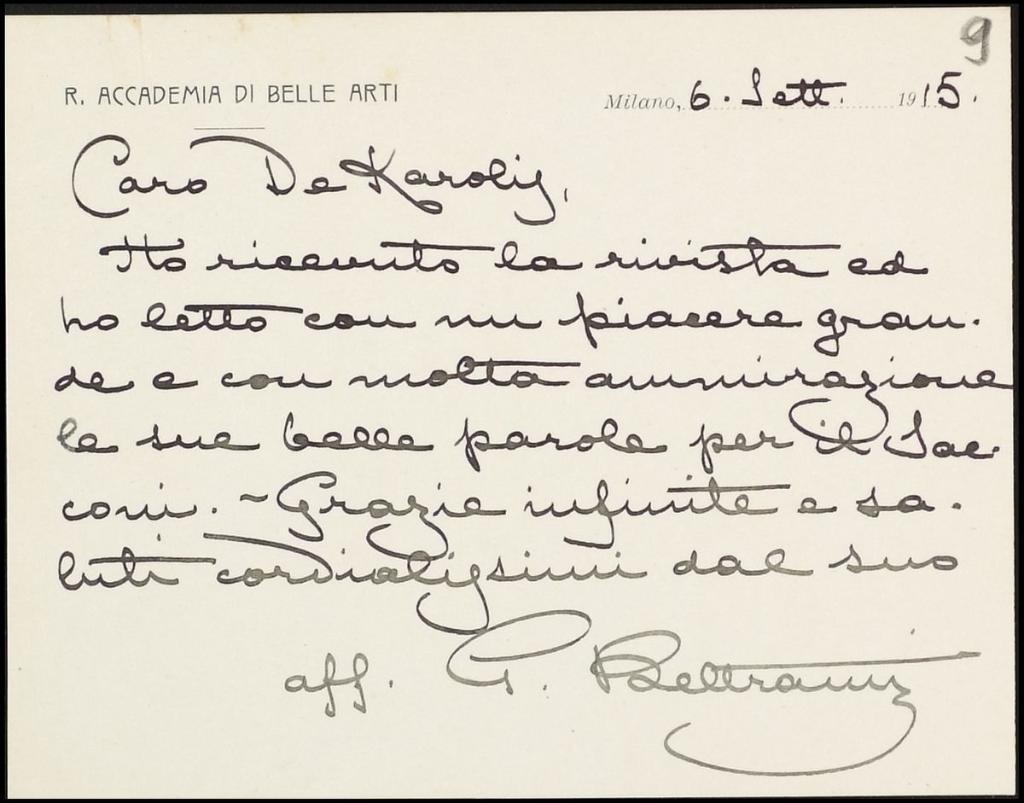 9
R. ACCADEMIA DI BELLE ARTI
Milano, 6. Sett. 1915.
Caro De Karolis,
Ho ricevuto la rivista ed
ho letto con un piacere gran-
de e con molta ammirazione
le sue belle parole per il Sac-
coni. - Grazie infinite e sa-
luti cordialissimi dal suo
aff. G. Beltrami